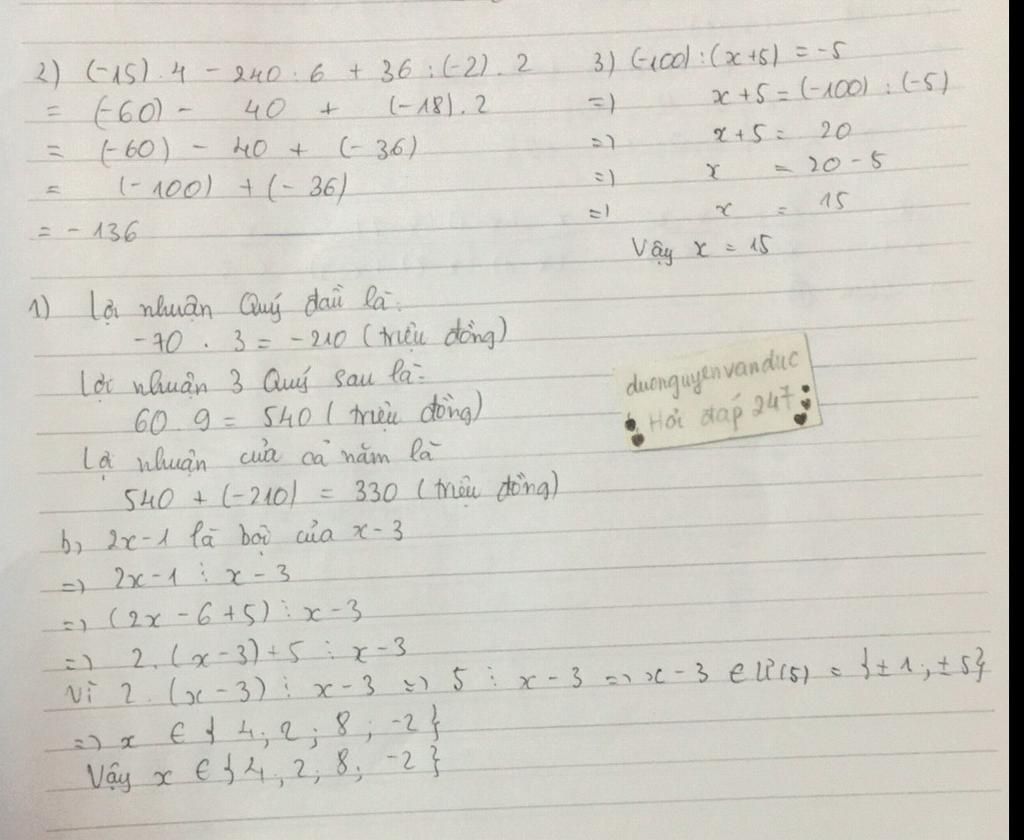 2) (-15) . 4 - 240 : 6 + 36 : (-2) . 2
= (-60) - 40 + (-18) . 2
= (-60) - 40 + (-36)
= (-100) + (-36)
= -136
3) (-100) : (x+5) = -5
=> x+5 = (-100) : (-5)
=> x+5 = 20
=> x = 20 - 5
=> x = 15
Vậy x = 15
1) Lợi nhuận Quý đầu là:
-70 . 3 = -210 (triệu đồng)
Lợi nhuận 3 Quý sau là:
60 . 9 = 540 (triệu đồng)
Lợi nhuận của cả năm là
540 + (-210) = 330 (triệu đồng)
duonguyenvanduc
Hỏi đáp 247
b, 2x-1 là bội của x-3
=> 2x-1 ⋮ x-3
=> (2x-6+5) ⋮ x-3
=> 2.(x-3)+5 ⋮ x-3
Vì 2.(x-3) ⋮ x-3 => 5 ⋮ x-3 => x-3 ∈ Ư(5) = {±1; ±5}
=> x ∈ {4; 2; 8; -2}
Vậy x ∈ {4; 2; 8; -2}